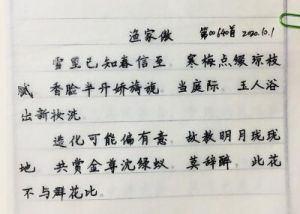 渔家傲 第00640首 2020.10.1
雪里已知春信至 寒梅点缀琼枝
腻 香脸半开娇旖旎 当庭际 玉人浴
出新妆洗
造化可能偏有意 故教明月珑珑
地 共赏金尊沈绿蚁 莫辞醉 此花
不与群花比